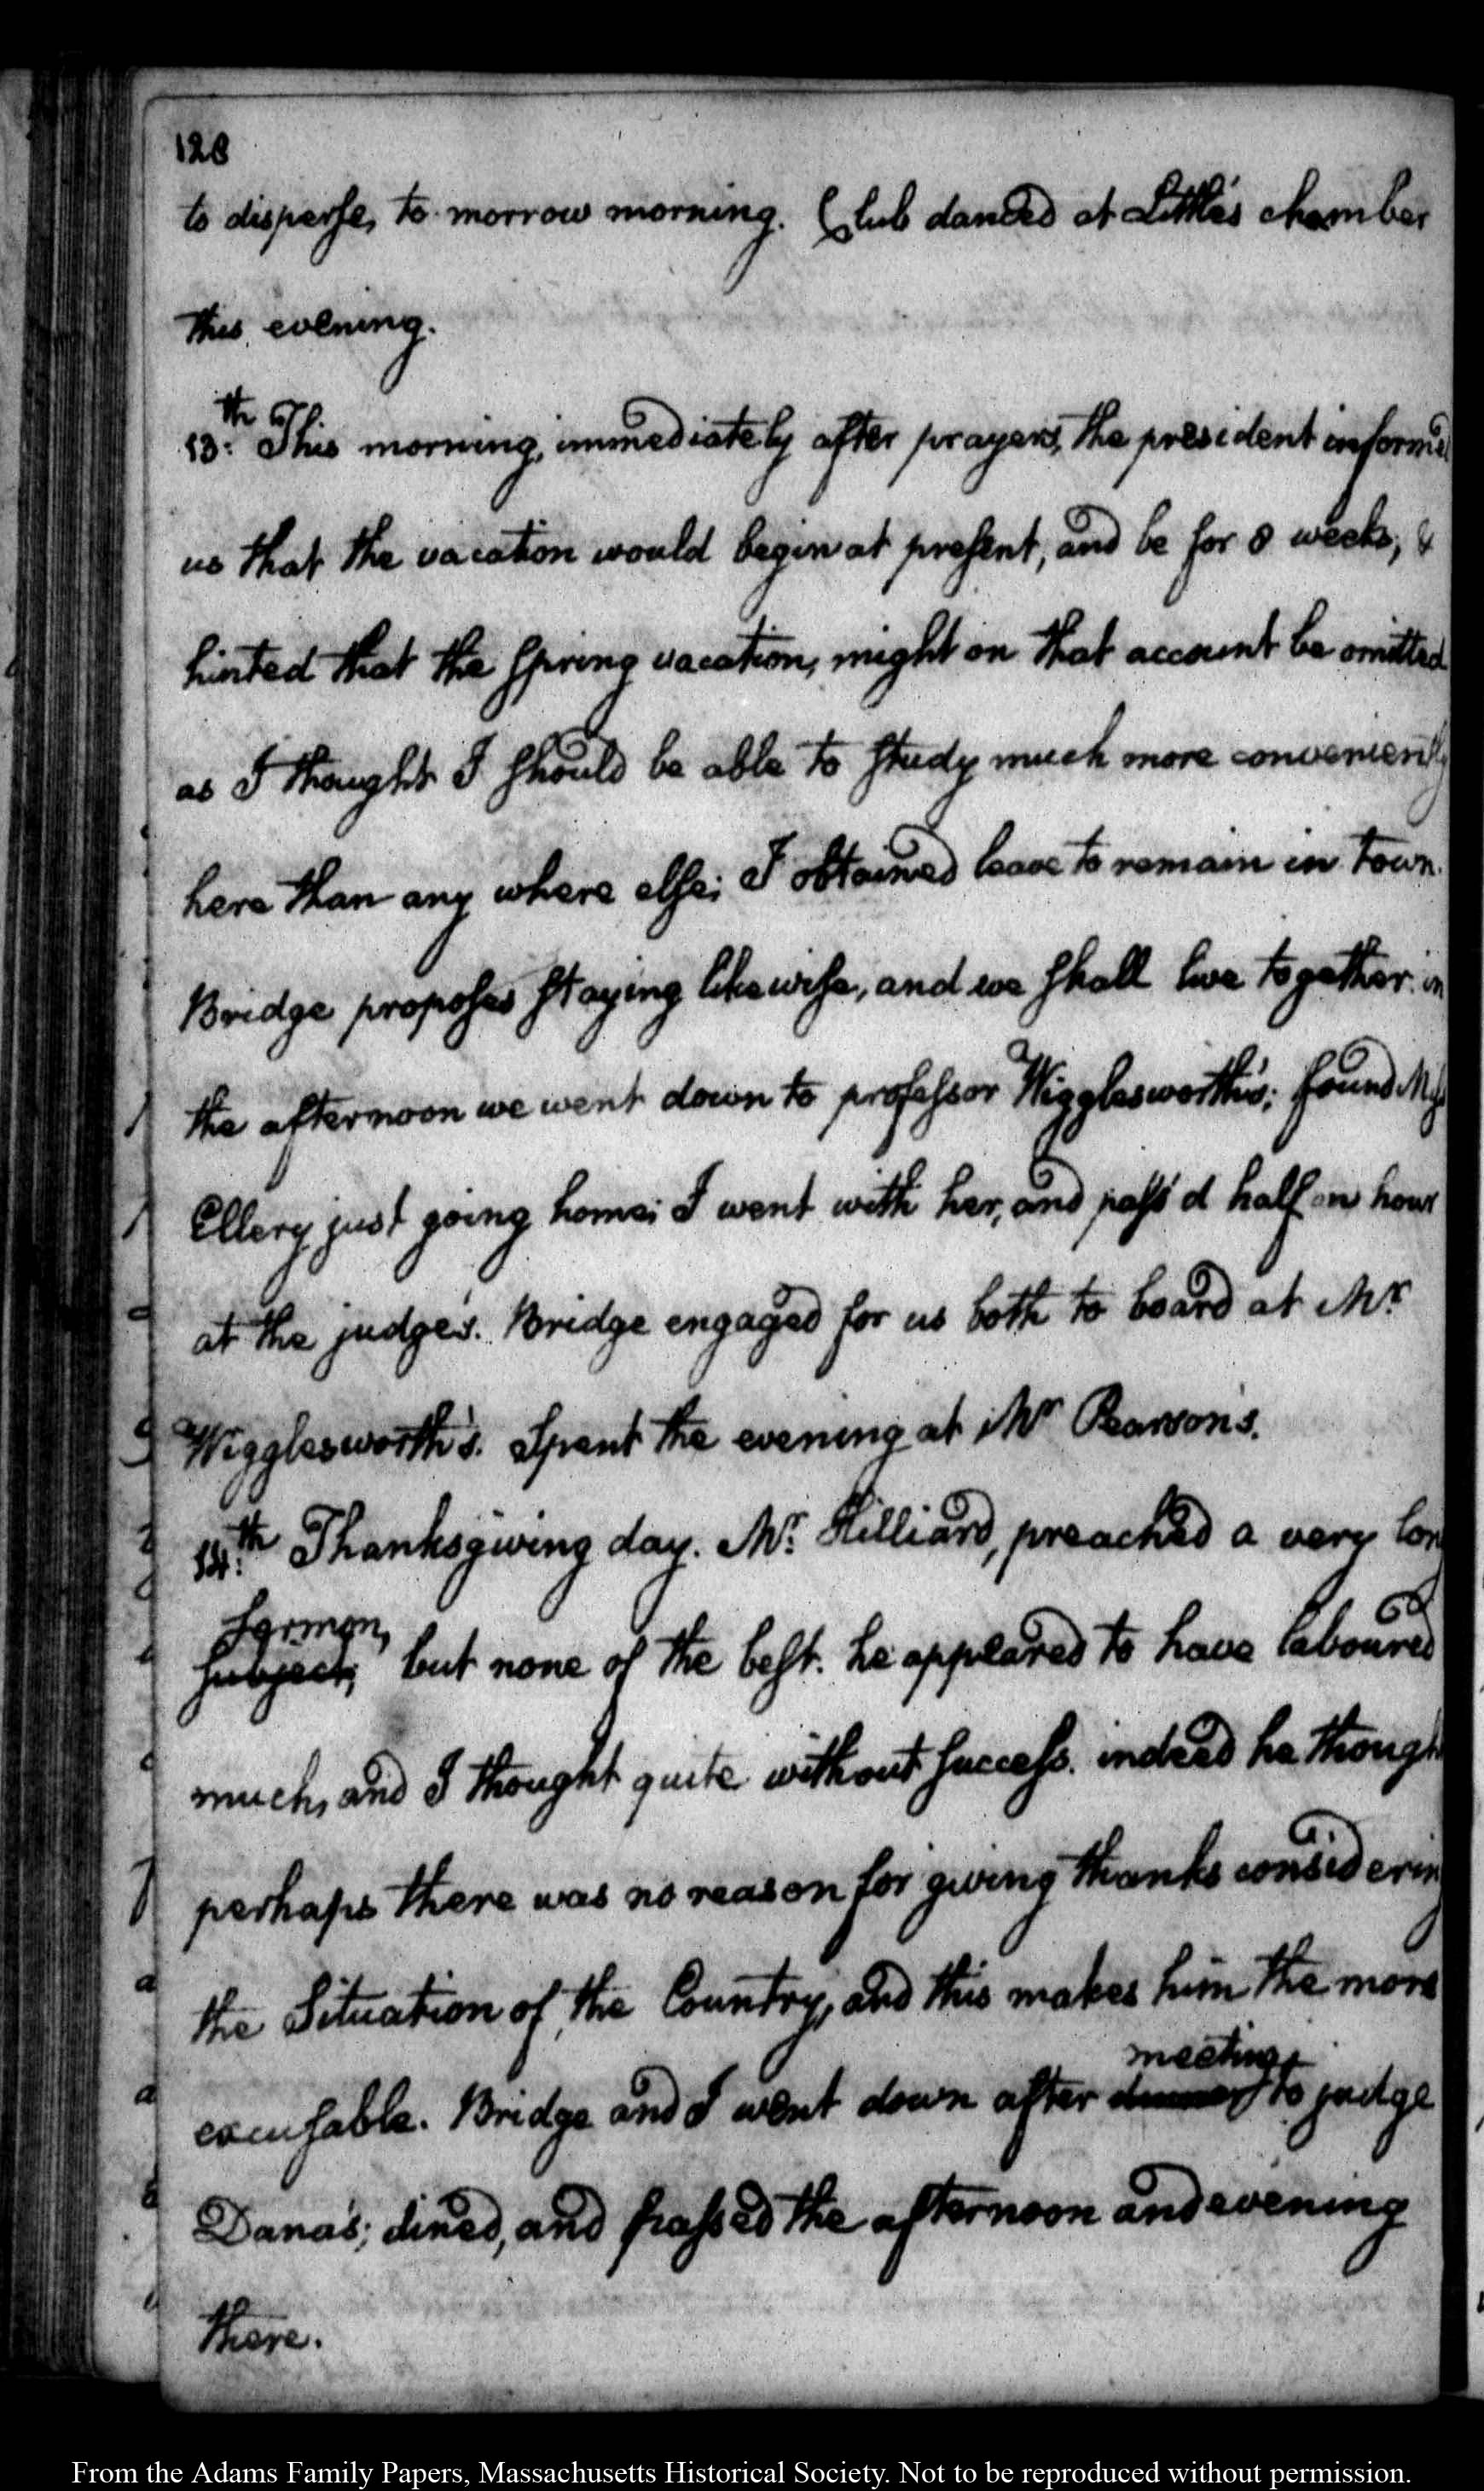 128
to disperse, to-morrow morning. Club danced at Little's chamber
this evening.
13:th This morning, immediately after prayers, the president inform'd
us that the vacation would begin at present, and be for 8 weeks, &
hinted that the Spring vacation, might on that account be omitted
as I thought I should be able to study much more conveniently
here than any where else; I obtained leave to remain in town.
Bridge proposes staying likewise, and we shall live together. in
the afternoon we went down to professor Wigglesworth's; found
Ellery just going home; I went with her, and pass'd half an hour
at the judge's. Bridge engaged for us both to board at Mr.
Wigglesworth's. Spent the evening at Mr Pearson's.
14:th Thanksgiving day. Mr. Hilliard, preached a very lon
Sermon,
subject, but none of the best. he appeared to have laboured
much, and I thought quite without success. indeed he though
perhaps there was no reason for giving thanks considerin
the Situation of the Country, and this makes him the more
meeting
excusable. Bridge and I went down after dinner to judge
Dana's; dined, and passed the afternoon and evening
there.
From the Adams Family Papers, Massachusetts Historical Society. Not to be reproduced without permission.